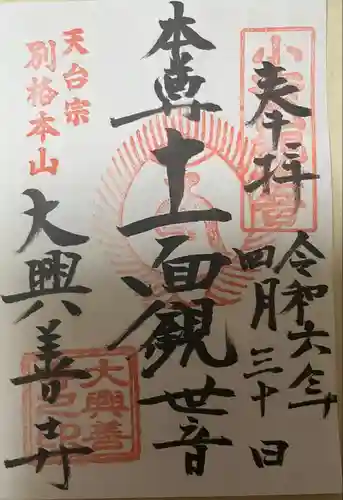 奉拝
令和六年
四月三十日
本尊
十一面観世音
天台宗
別格本山
大興善寺
大興善